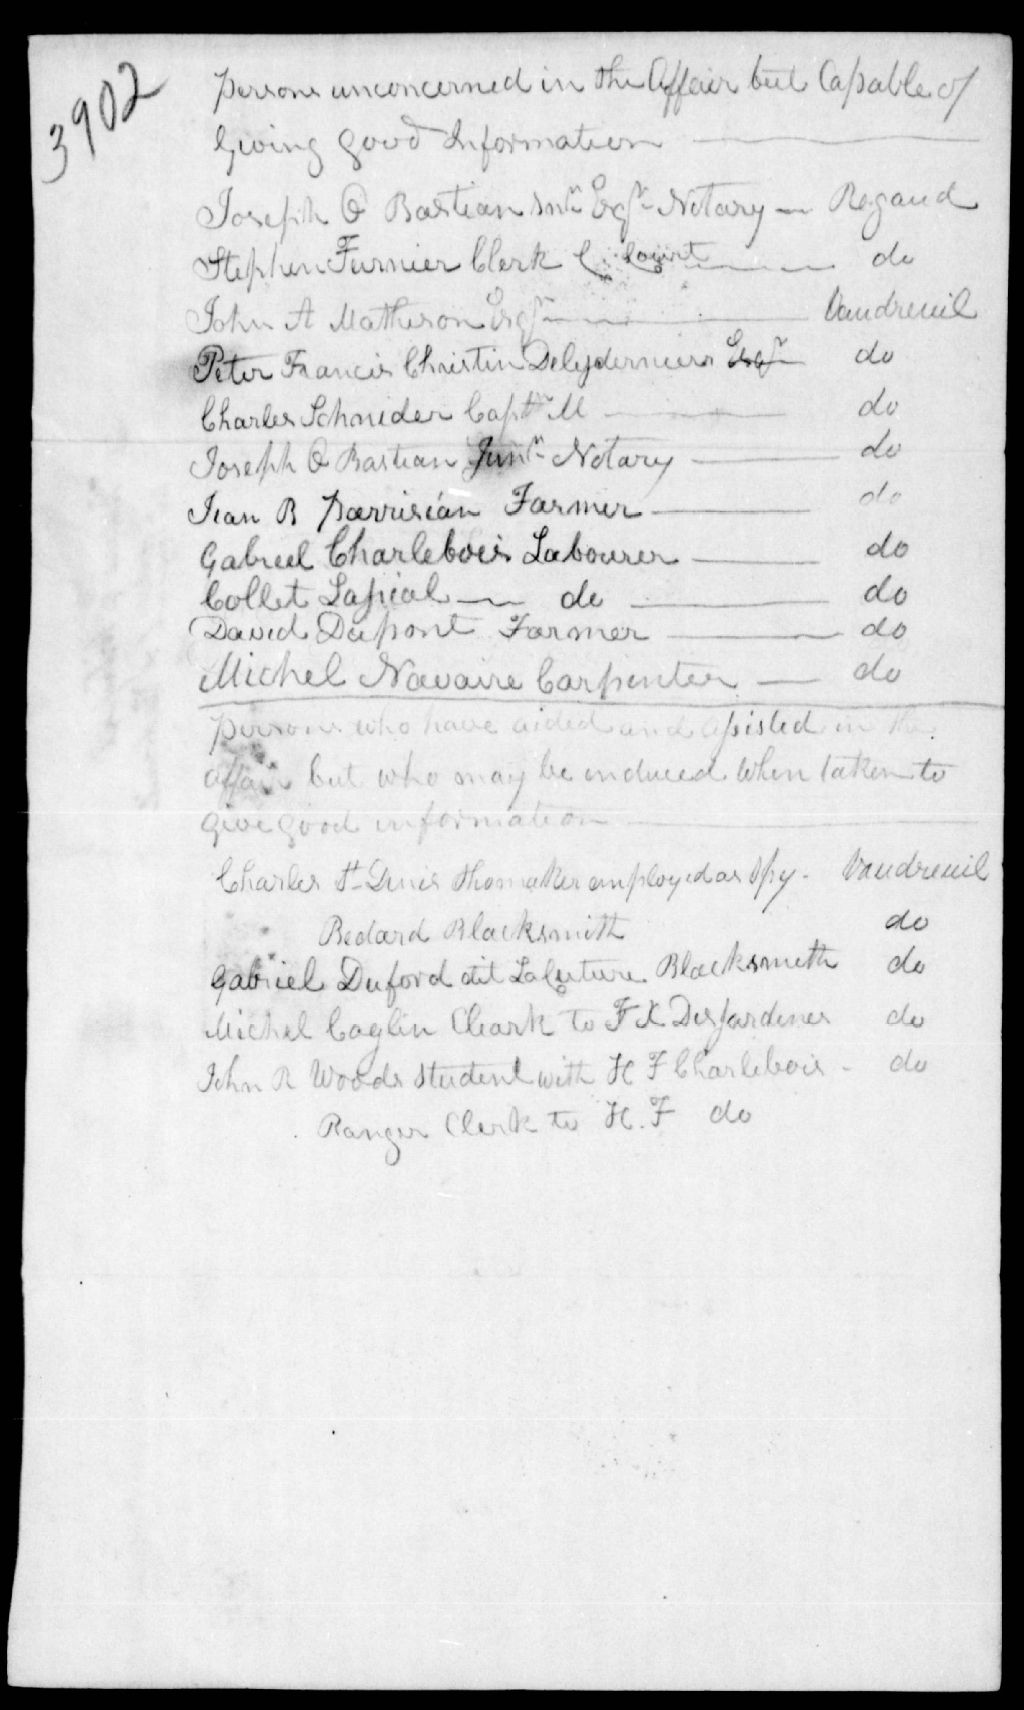 3902
persons unconcerned in the Affair but Capable of
Giving good Information
Joseph O Bastian Snr Esqr Notary Regaud
Stephen Furnier Clerk C. Court do
John A Matheson Esqr Vaudreuil
Peter Francis Christin Delyderniers Esqr do
Charles Schnider Captn M do
Joseph O Bastian Junr Notary do
Jean B parrisián Farmer do
Gabriel Charlebois Labourer do
Collet Lapical do do
David Dupont Farmer do
Michel Navaire Carpenter do
persons who have aided and assisted in the
affair but who may be induced when taken to
give good information
Charles St Denis Shomaker employed as spy. Vaudreuil
Bedard Blacksmith do
Gabriel Duford dit Laluture Blacksmith do
Michel Caglin Cleark to F X Desjardines do
John R Woods student with H F Charlebois - do
Ranger Clerk to H. F do